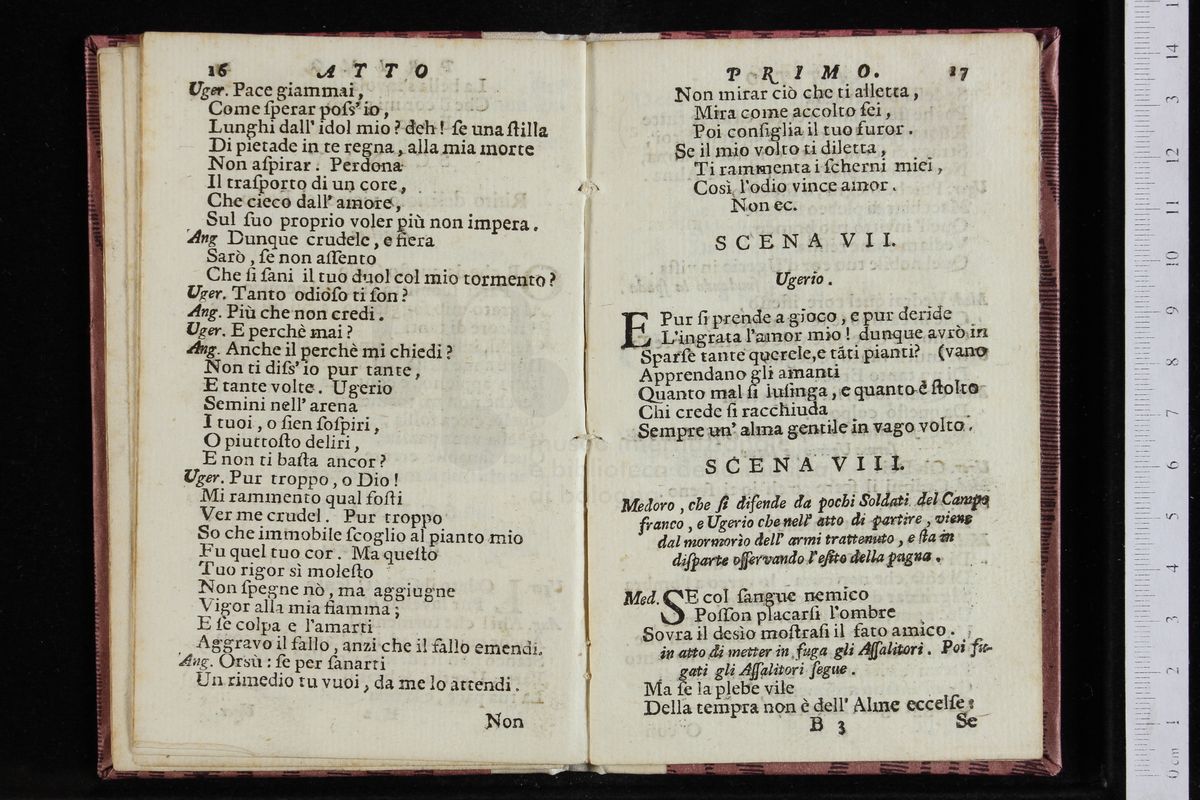 16 ATTO
Uger. Pace giammai,
Come ſperar poſs'io,
Lunghi dall'idol mio? deh! ſe una ſtilla
Di pietade in te regna, alla mia morte
Non aſpirar. Perdona
Il traſporto di un core,
Che cieco dall'amore,
Sul ſuo proprio voler più non impera.
Ang Dunque crudele, e fiera
Sarò, ſe non aſſento
Che ſi ſani il tuo duol col mio tormento?
Uger. Tanto odioſo ti ſon?
Ang. Più che non credi.
Uger. E perchè mai?
Ang. Anche il perchè mi chiedi?
Non ti diſs'io pur tante,
E tante volte. Ugerio
Semini nell'arena
I tuoi, o ſien ſoſpiri,
O piuttoſto deliri,
E non ti baſta ancor?
Uger. Pur troppo, o Dio!
Mi rammento qual foſti
Ver me crudel. Pur troppo
So che immobile ſcoglio al pianto mio
Fu quel tuo cor. Ma queſto
Tuo rigor sì moleſto
Non ſpegne nò, ma aggiugne
Vigor alla mia fiamma;
E ſe colpa e l'amarti
Aggravo il fallo, anzi che il fallo emendi.
Ang. Orsù: ſe per ſanarti
Un rimedio tu vuoi, da me lo attendi.
Non
PRIMO. 17
Non mirar ciò che ti alletta,
Mira come accolto ſei,
Poi conſiglia il tuo furor.
Se il mio volto ti diletta,
Ti rammenta i ſcherni miei,
Così l'odio vince amor.
Non ec.
SCENA VII.
Ugerio.
E Pur ſi prende a gioco, e pur deride
L'ingrata l'amor mio! dunque avrò in
Sparſe tante querele, e tãti pianti? (vano
Apprendano gli amanti
Quanto mal ſi luſinga, e quanto è ſtolto
Chi crede ſi racchiuda
Sempre un'alma gentile in vago volto.
SCENA VIII.
Medoro, che ſi difende da pochi Soldati del Campo
franco, e Ugerio che nell'atto di partire, viene
dal mormorìo dell'armi trattenuto, e ſta in
diſparte oſſervando l'eſito della pugna.
Med. SE col ſangue nemico
Poſſon placarſi l'ombre
Sovra il desìo moſtraſi il fato amico.
in atto di metter in fuga gli Aſſalitori. Poi fu-
gati gli Aſſalitori ſegue.
Ma ſe la plebe vile
Della tempra non è dell'Alme eccelſe:
B 3 Se